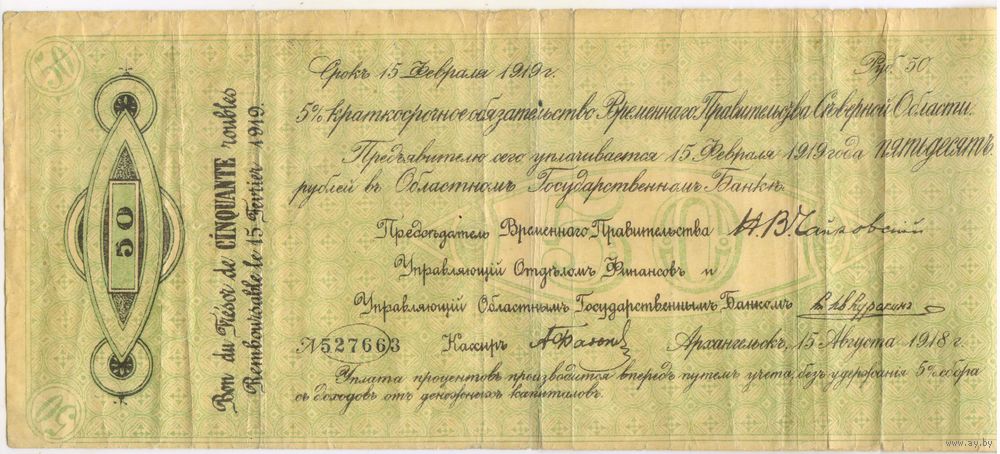 50
50
50
Bon du Trésor de CINQUANTE roubles
Remboursable le 15 Fevrier 1919.
Срокъ 15 Февраля 1919 г. Руб. 50
5% краткосрочное обязательство Временнаго Правительства Сѣверной Области.
Предъявителю сего уплачивается 15 Февраля 1919 года пятидесятъ
рублей въ Областномъ Государственномъ Банкѣ.
50
Предсѣдатель Временнаго Правительства Н.В. Чайковский
Управляющій Отдѣломъ Финансовъ и
Управляющій Областнымъ Государственнымъ Банкомъ Куракинъ
№ 527663 Кассиръ Архангельскъ, 15 Августа 1918 г.
Уплата процентовъ производится впередъ путемъ учета, безъ удержанія 5% сбора
съ доходовъ отъ денежныхъ капиталовъ.
www.ay.by